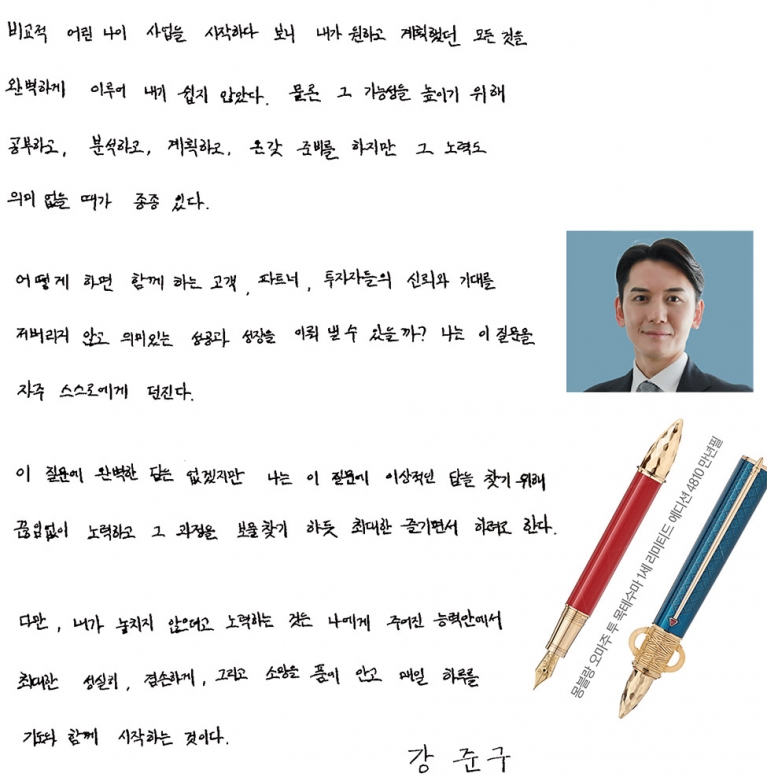 비교적 어린 나이 사업을 시작하다 보니 내가 원하고 계획했던 모든 것을
완벽하게 이루어 내기 쉽지 않았다. 물론 그 가능성을 높이기 위해
공부하고, 분석하고, 계획하고, 온갖 준비를 하지만 그 노력도
의미 없을 때가 종종 있다.
어떻게 하면 함께 하는 고객, 파트너, 투자자들의 신뢰와 기대를
저버리지 않고 의미있는 성공과 성장을 이뤄 낼 수 있을까? 나는 이 질문을
자주 스스로에게 던진다.
이 질문에 완벽한 답은 없겠지만 나는 이 질문에 이상적인 답을 찾기 위해
끊임없이 노력하고 그 과정을 보물찾기 하듯 최대한 즐기면서 하려고 한다.
다만, 내가 놓치지 않으려고 노력하는 것은 나에게 주어진 능력안에서
최대한 성실히, 겸손하게, 그리고 소망을 품에 안고 매일 하루를
기도와 함께 시작하는 것이다.
강 준 구
몽블랑 오마주 투 목테수마 1세 리미티드 에디션 4810 만년필